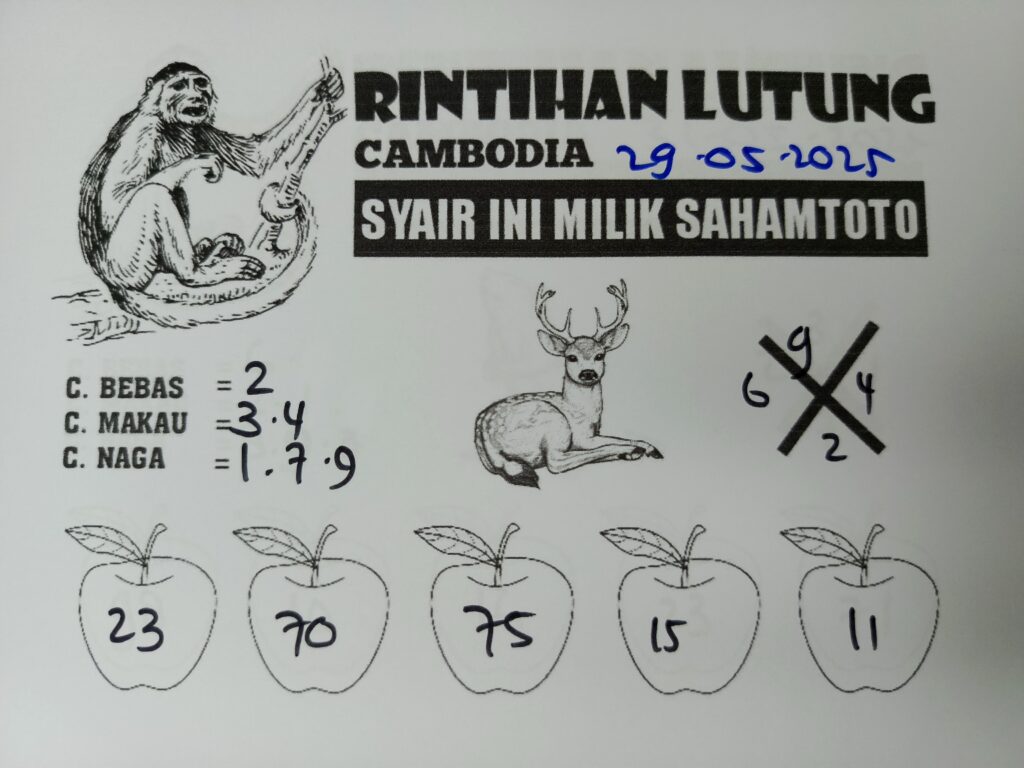 RINTIHAN LUTUNG
CAMBODIA 29.05.2025
SYAIR INI MILIK SAHAMTOTO
C. BEBAS = 2
C. MAKAU = 3.4
C. NAGA = 1.7.9
9
6 4
2
23 70 75 15 11